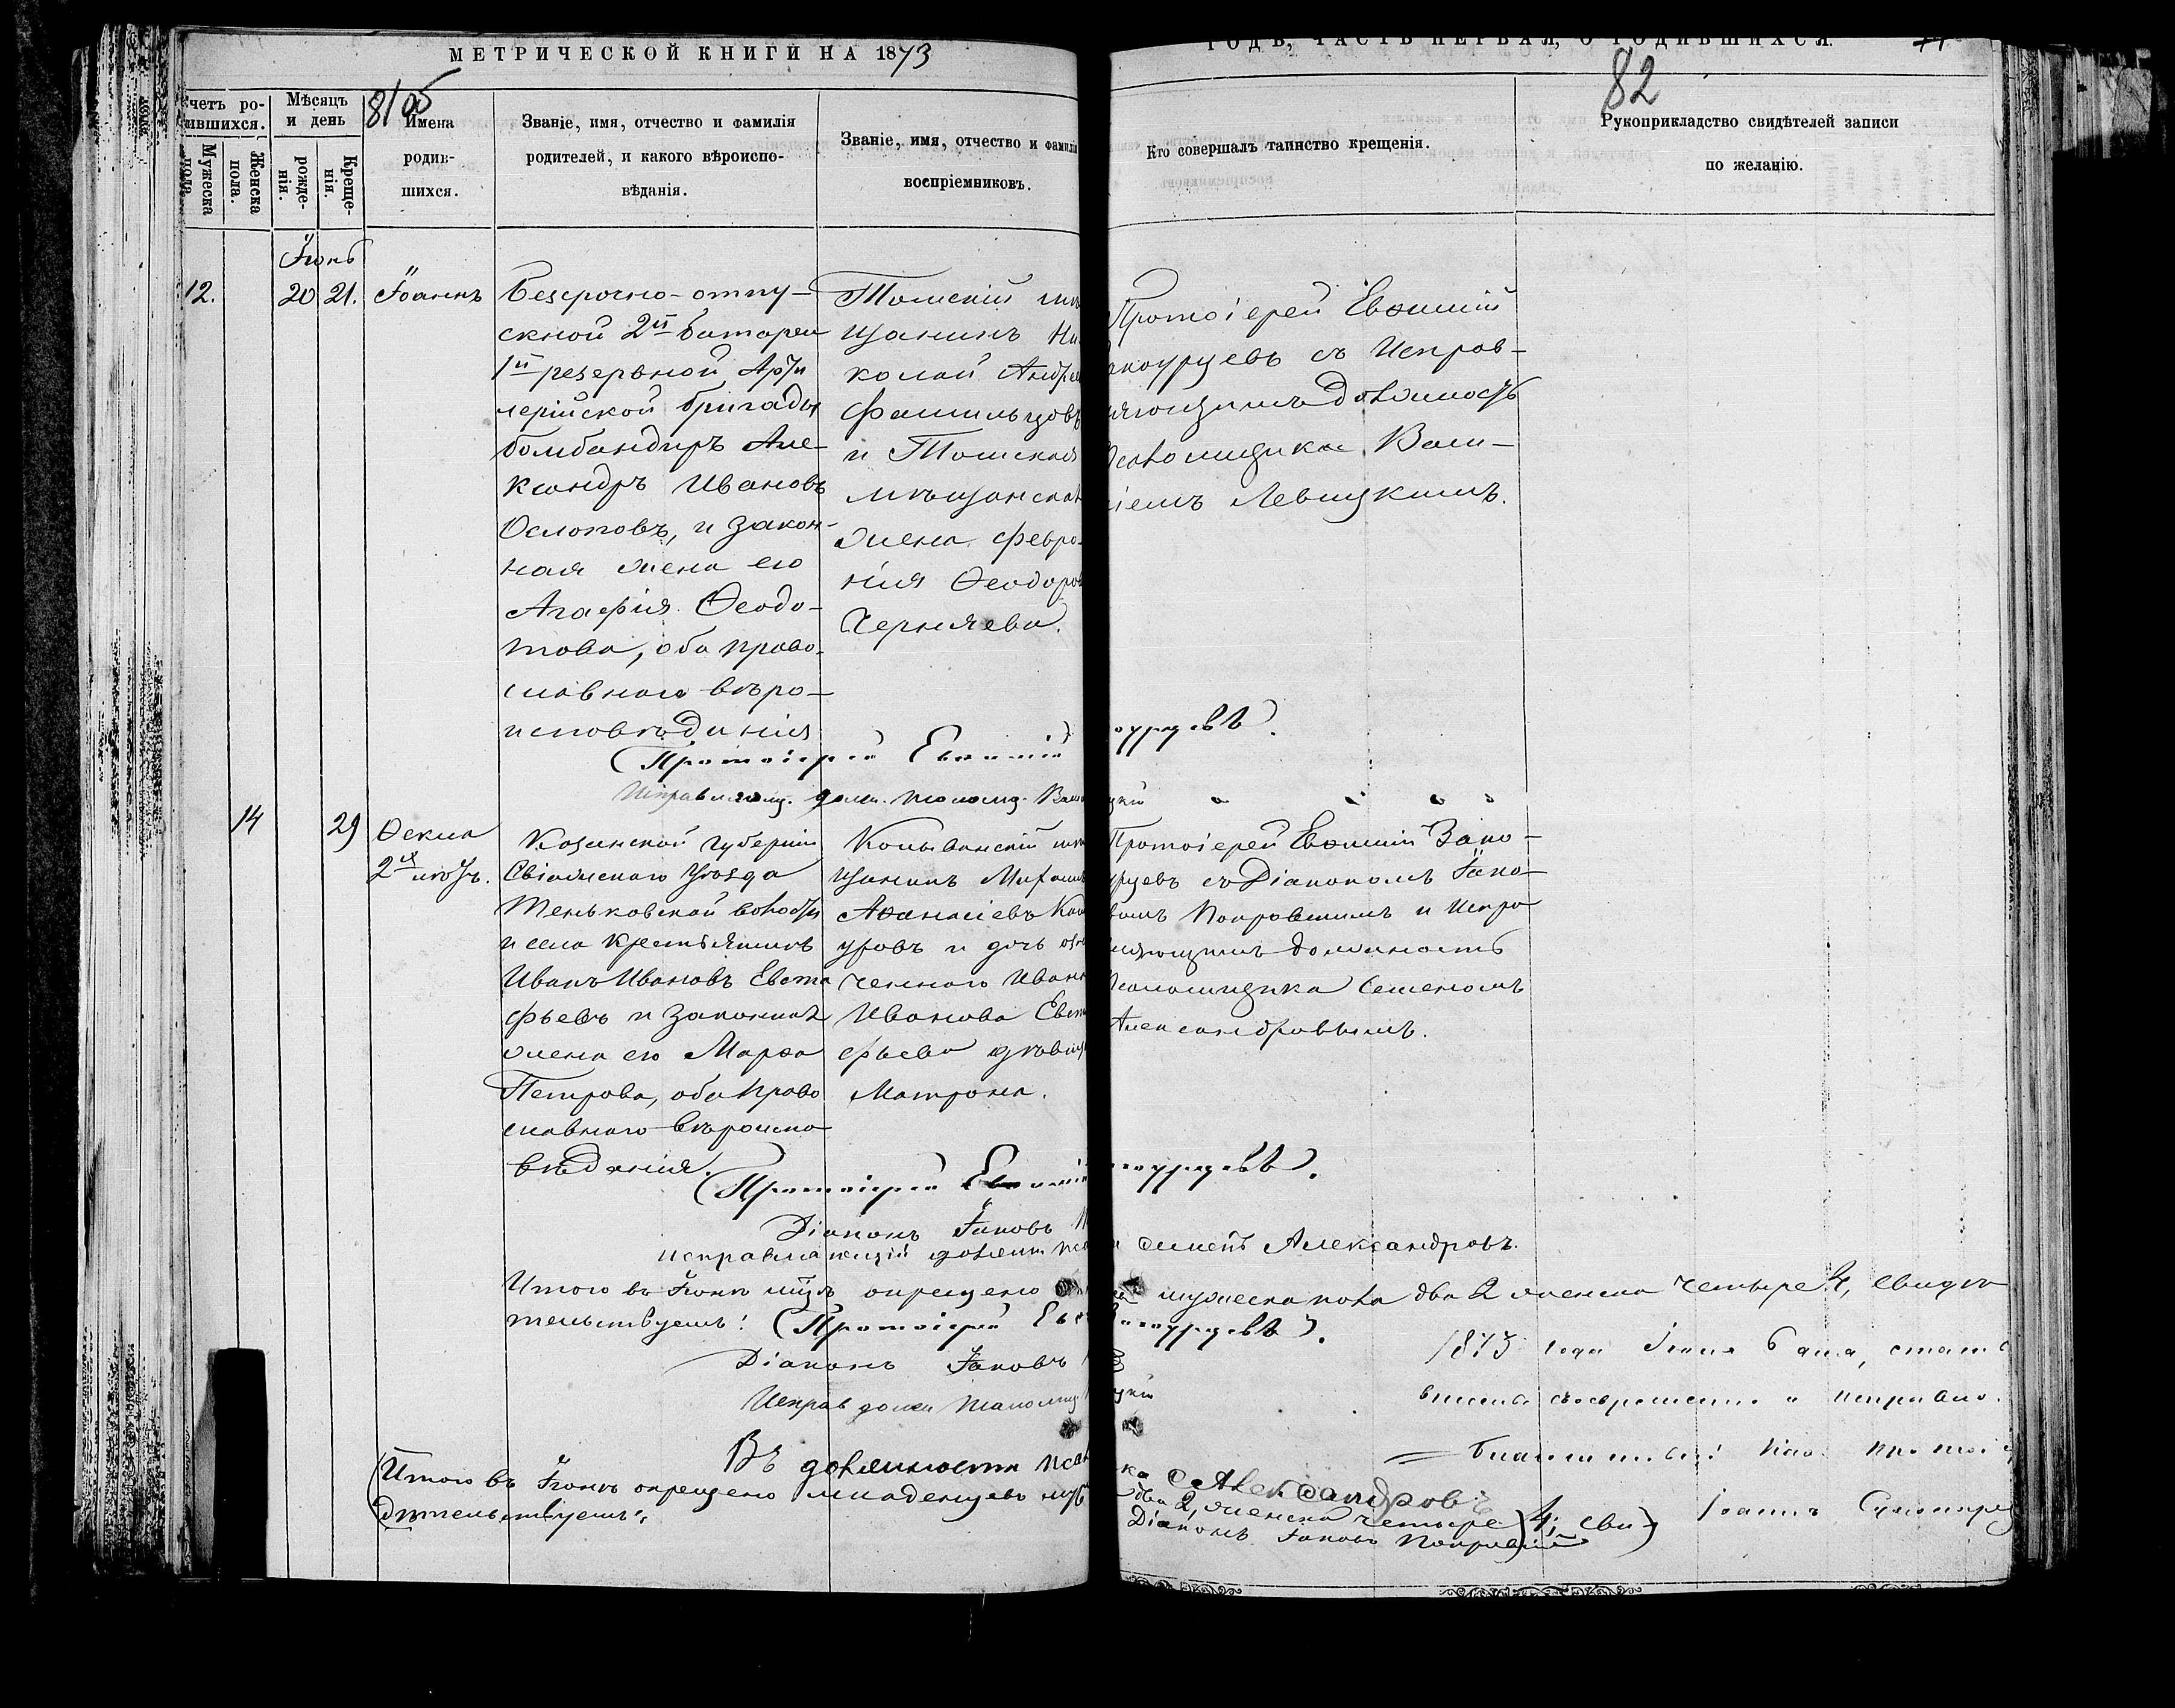 МЕТРИЧЕСКОЙ КНИГИ НА 1873
ГОДЪ, ЧАСТЬ ПЕРВАЯ, О РОДИВШИХСЯ.
82
Счетъ ро-
дившихся.
Мужеска пола.
Женска пола.
Мѣсяцъ и день
рожде-
нія.
Креще-
нія.
Имена
родив-
шихся.
Званіе, имя, отчество и фамилія
родителей, и какого вѣроиспо-
вѣданія.
Званіе, имя, отчество и фамилія
воспріемниковъ.
Кто совершалъ таинство крещенія.
Рукоприкладство свидѣтелей записи
по желанію.
Іюнь
12.
20
21.
Іоаннъ
Безсрочно-отпу-
скной 2й батареи
1й резервной Арти
лерійской бригады
бомбандиръ Але-
ксандръ Ивановъ
Ослоповъ, и закон-
ная жена его
Агафія Ѳеодо-
това, оба право-
славнаго вѣро-
исповѣданія
Томскій мѣ
щанинъ Ни
колай Андрее
Фамильцовъ
и Томская
мѣщанская
жена Февро-
нія Ѳеодоров
Черняева.
Протоіерей Евѳимій
съ Исправ-
ляющимъ должность
Псаломщика Васи-
ліемъ Левицкимъ.
Протоіерей Евѳимій
Исправляющ. долж. псаломщ.
14
29
Ѳекла
Казанской губерніи
Свіяжскаго Уѣзда
Теньковской волости
и села крестьянинъ
Иванъ Ивановъ Евста
фьевъ и законная
жена его Марѳа
Петрова, оба право
славнаго вѣроиспо
вѣданія.
Колыванскій мѣ
щанинъ
Аѳанасіевъ
уровъ и дочь озна
ченнаго Ивана
Иванова Евста
фьева дѣвица
Матрона.
Протоіерей Евѳимій
съ Діакономъ Іако-
вомъ Покровскимъ и Испра
вляющимъ должность
Псаломщика Семеномъ
Александровымъ.
Протоіерей Евѳимій
Діаконъ Іаковъ
исправляющій должн. пса
Семенъ Александровъ.
Итого въ Іюнѣ мцѣ окрещено
мужеска пола два 2 женска четыре 4, свидѣ
тельствуемъ: Протоіерей
Діаконъ Іаковъ
Исправ долж псаломщ
1873 года
Въ должности пса
Александровъ
Итого въ Іюнѣ окрещено младенцевъ муж
два 2, женска четыре 4; сви-
дѣтельствуемъ:
Діаконъ Іаковъ Покровскій
Іоаннъ